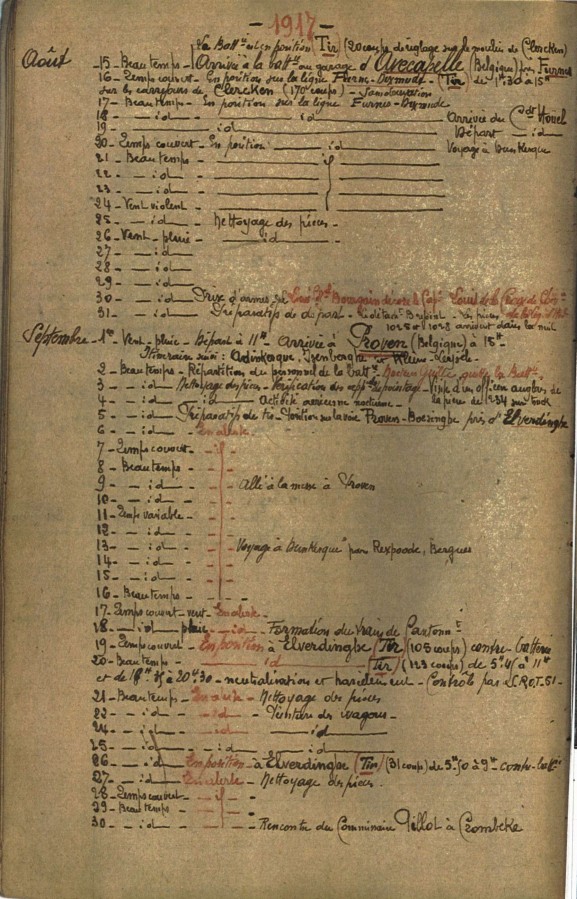 - 1917 -
La Battie est en position (Tir) (20 coups de réglage sur le moulin de Clercken)
Août - 15 - Beau temps - Arrivée à la battie au garage d'Avecapelle (Belgique) près Furnes
16 - Temps couvert - En position sur la ligne Furnes-Dixmude - (Tir) de 1h30 à 15h
sur les carrefours de Clercken (170 coups) -
17 - Beau temps - En position sur la ligne Furnes - Dixmude
18 - - id - id Arrivée du Cdt Hovel
19 - id Départ - id
20 - Temps couvert - En position - id Voyage à Dunkerque
21 - Beau temps -
22 - - id -
23 - - id -
24 - Vent violent -
25 - - id - Nettoyage des pièces -
26 - Vent - pluie - id -
27 - - id
28 - - id
29 - - id
30 - - id - Prise d'armes
31 - - id - Préparatifs de départ - Les pièces
1028 et 1029 arrivent dans la nuit
Septembre - 1er Vent - pluie - Départ à 11h Arrivée à Proven (Belgique) à 15h -
Itinéraire suivi : Adinkerque, Isenberghe et Klein-Leysele -
2 - Beau temps - Répartition du personnel de la battie - quitte la Battie
3 - - id - Nettoyage des pièces - Vérification des de pointage - Visite d'un officier anglais de
4 - - id - id - Activité aérienne nocturne - la pièce de 234 sur truck
5 - - id - Préparatifs de tir - Position sur la voie Proven - Boesinghe près d'Elverdinghe
6 - - id - En alerte -
7 - Temps couvert -
8 - Beau temps -
9 - - id - - Allé à la messe à Proven
10 - - id -
11 - Temps variable -
12 - - id -
13 - - id - - Voyage à Dunkerque par Rexpoede, Bergues
14 - - id -
15 - - id -
16 - Beau temps -
17 - Temps couvert - vent - En alerte -
18 - - id - pluie - id - Formation du train de Cantonnt
19 - Temps couvert - En position à Elverdinghe (Tir) (105 coups) contre-batterie
20 - Beau temps - id - (Tir) (123 coups) de 5h45 à 11h
et de 18h35 à 20h30 - neutralisation et harcèlement - Contrôlé par S.R.O.T. 51 -
21 - Beau temps - En alerte - Nettoyage des pièces
22 - - id - - id - Peinture des wagons -
24 - - id - id - id
25 - - id - - id - id
26 - - id - En position - à Elverdinghe (Tir) (31 coups) de 5h50 à 9h contre-battie
27 - - id - En alerte - Nettoyage des pièces -
28 - Temps couvert -
29 - Beau temps -
30 - - id - - Rencontre du Commissaire Gillot à Crombeke